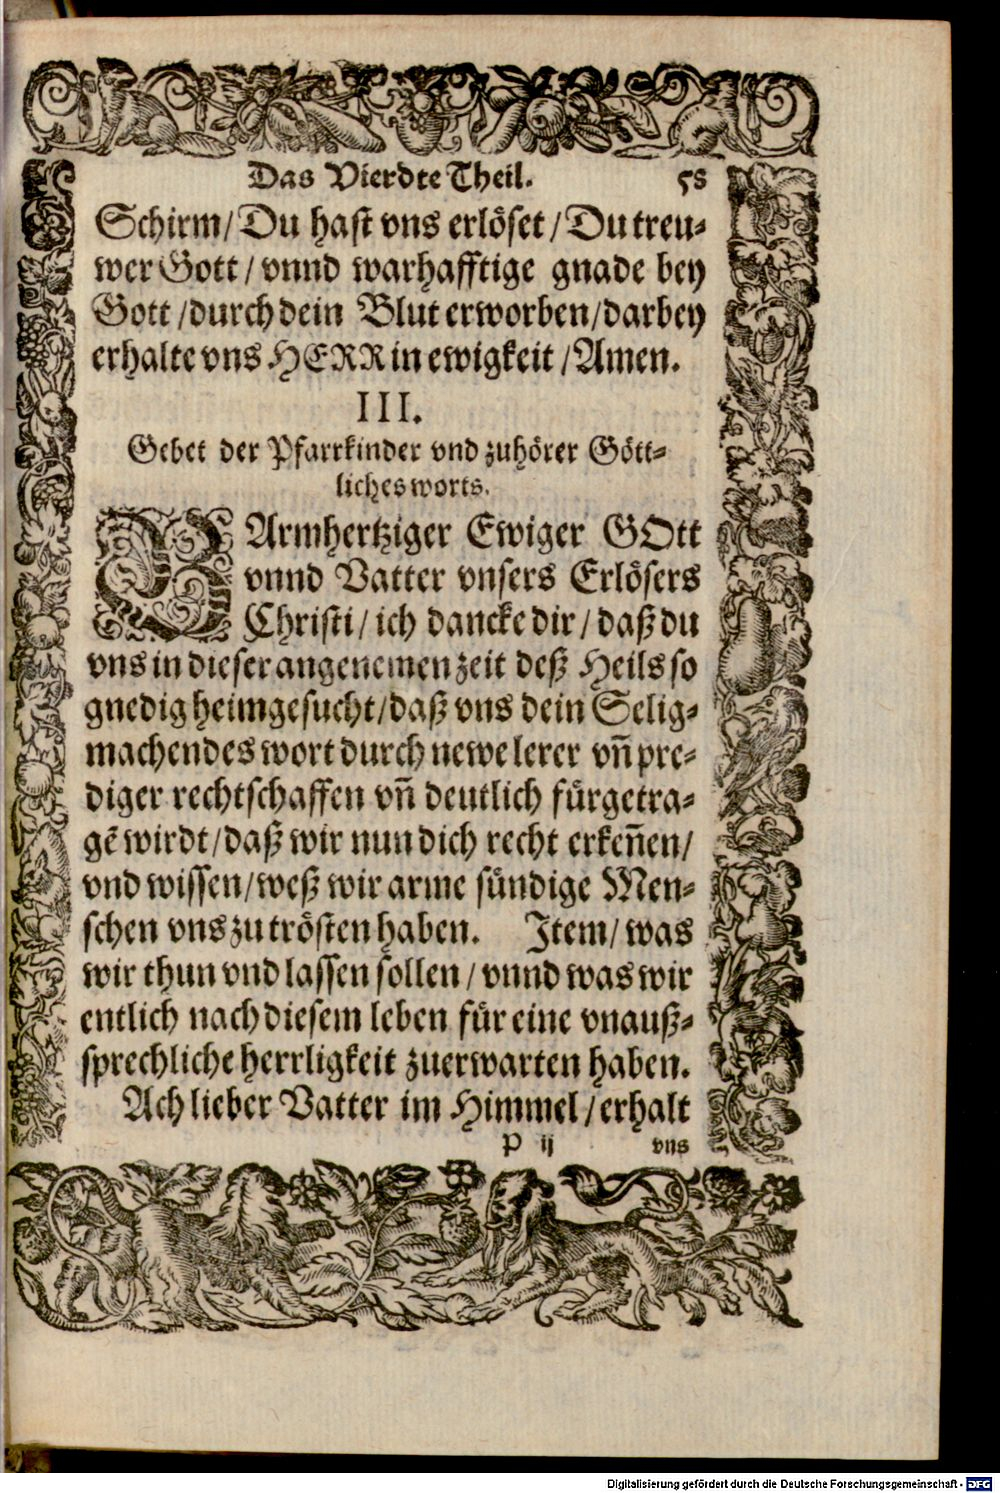 Das Vierdte Theil. 58
Schirm/ Du hast vns erlöset/ Du treu-
wer Gott/ vnnd warhafftige gnade bey
Gott/ durch dein Blut erworben/ darbey
erhalte vns HERR in ewigkeit/ Amen.
III.
Gebet der Pfarrkinder vnd zuhörer Gött-
liches worts.
BArmhertziger Ewiger GOtt
vnnd Vatter vnsers Erlösers
Christi/ ich dancke dir/ daß du
vns in dieser angenemen zeit deß Heils so
gnedig heimgesucht/ daß vns dein Selig-
machendes wort durch newe lerer vñ pre-
diger rechtschaffen vñ deutlich fürgetra-
gẽ wirdt/ daß wir nun dich recht erkeñen/
vnd wissen/ weß wir arme sündige Men-
schen vns zu trösten haben. Item/ was
wir thun vnd lassen sollen/ vnnd was wir
entlich nach diesem leben für eine vnauß-
sprechliche herrligkeit zuerwarten haben.
Ach lieber Vatter im Himmel/ erhalt
P ij vns
Digitalisierung gefördert durch die Deutsche Forschungsgemeinschaft - DFG